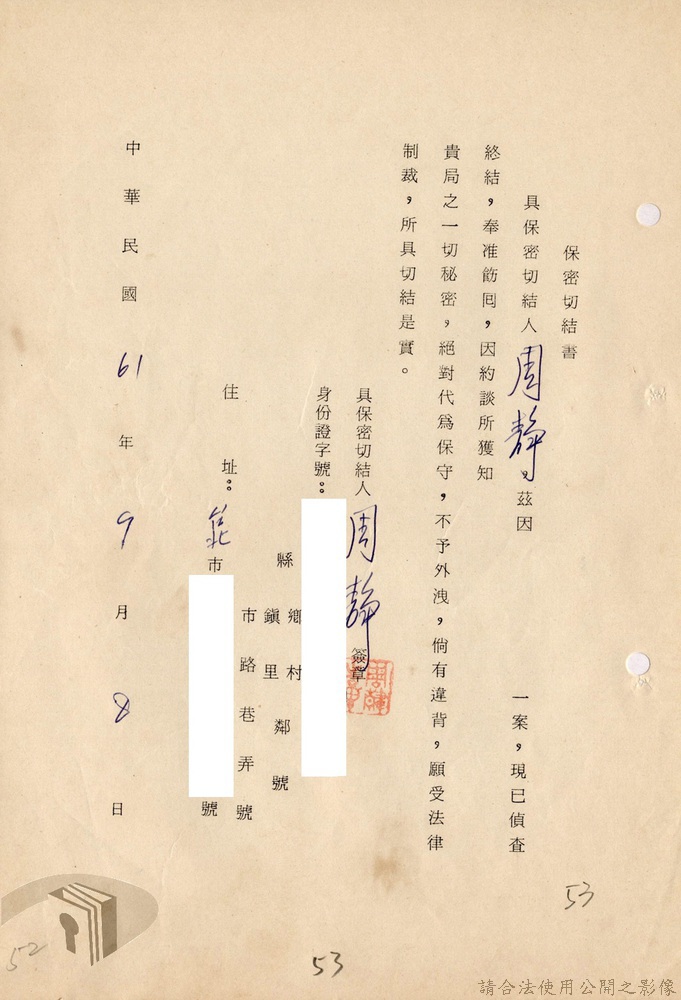 保密切結書
具保密切結人周靜。茲因 一案，現已偵查
終結，奉准飭回，因約談所獲知
貴局之一切秘密，絕對代為保守，不予外洩，倘有違背，願受法律
制裁，所具切結是實。
具保密切結人周靜簽章
身份證字號：
縣 鄉 村 鄰 號
鎮 里
住址： 市 路 巷 弄 號
市 號
中華民國61年9月8日
53
53
52
請合法使用公開之影像